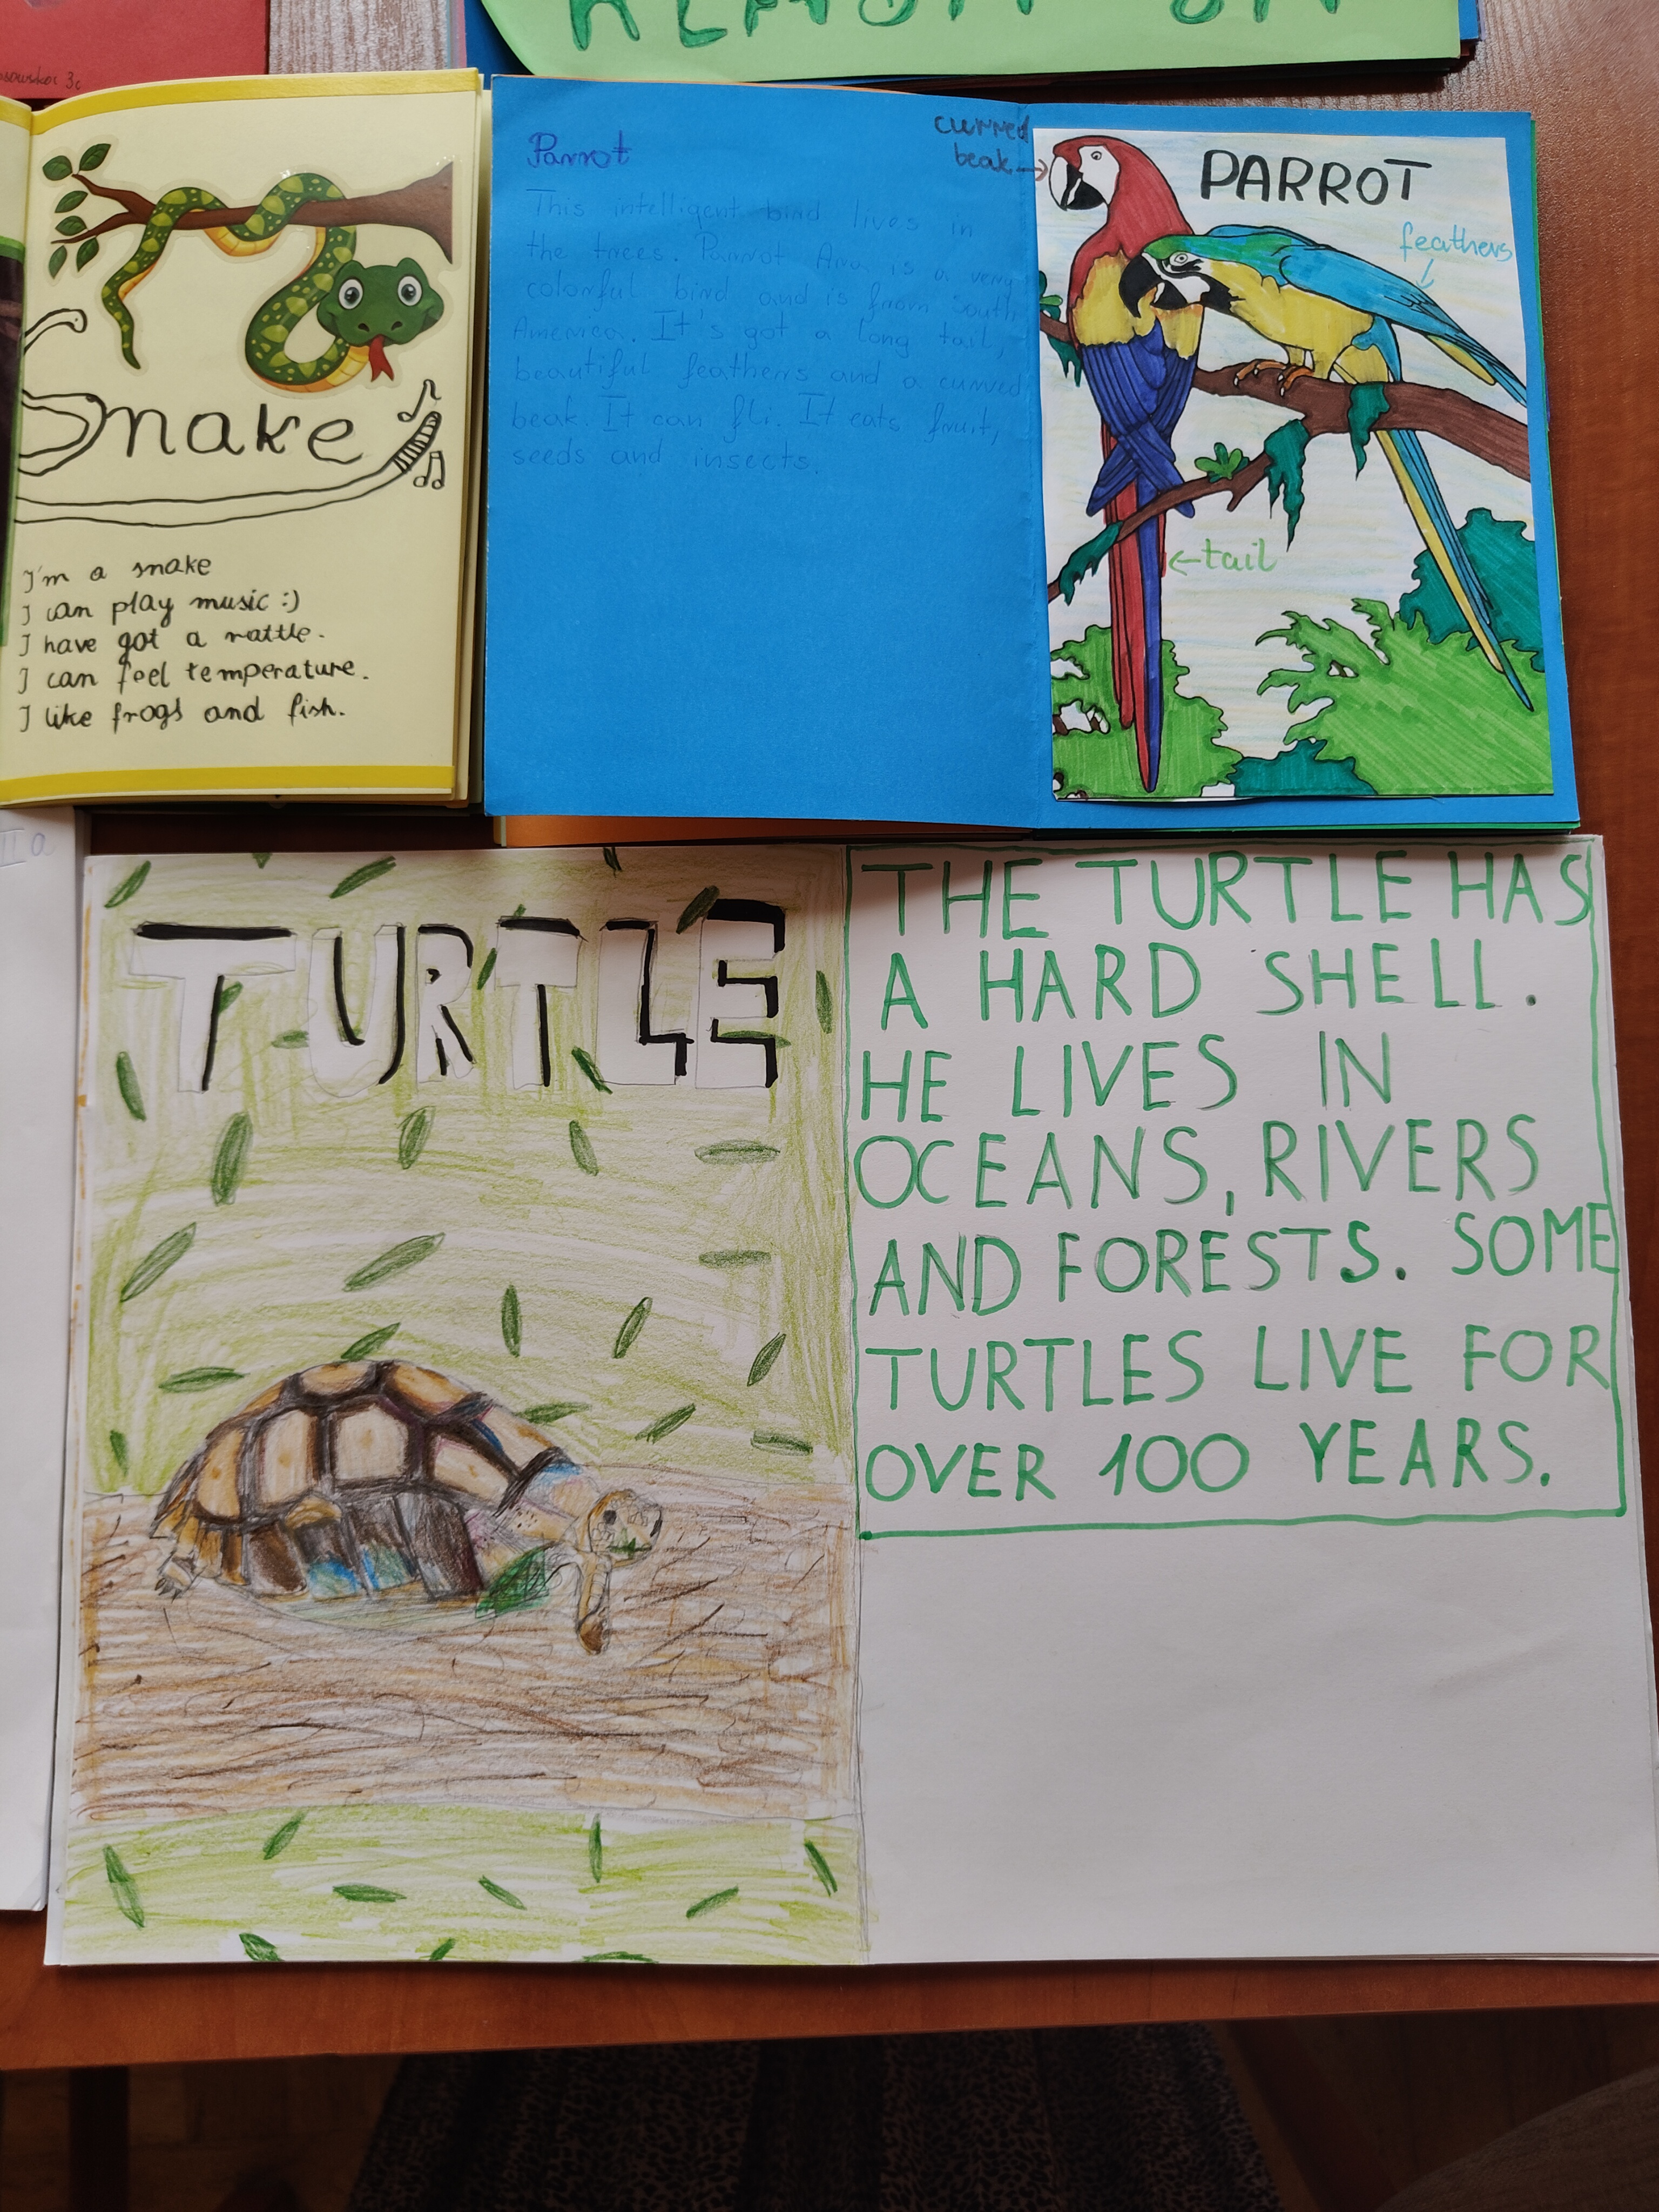 3c
Snake
I'm a snake
I can play music :)
I have got a rattle.
I can feel temperature.
I like frogs and fish.
Parrot
This intelligent bird lives in
the trees. Parrot Ara is a very
colorful bird and is from South
America. It's got a long tail,
beautiful feathers and a curved
beak. It can fli. It eats fruit,
seeds and insects.
curved
beak →
PARROT
feathers
← tail
II a
TURTLE
THE TURTLE HAS
A HARD SHELL.
HE LIVES IN
OCEANS, RIVERS
AND FORESTS. SOME
TURTLES LIVE FOR
OVER 100 YEARS.